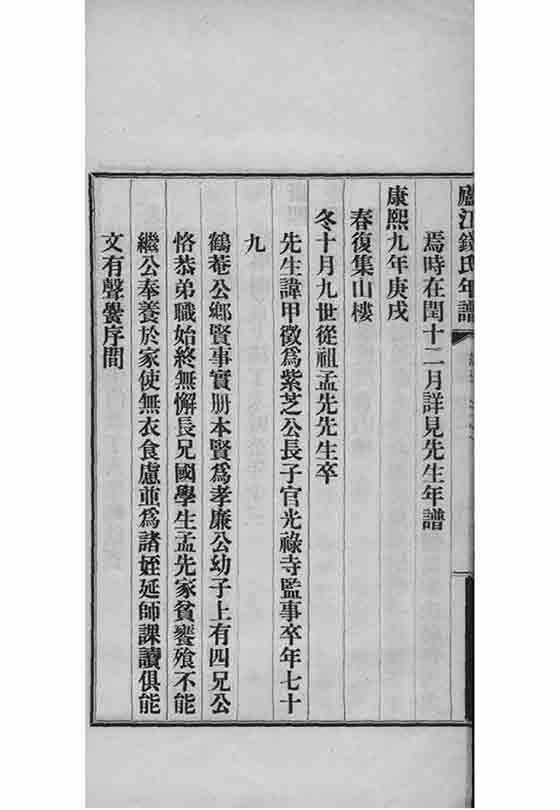 廬江錢氏年譜
焉時在閏十二月詳見先生年譜
康熙九年庚戌
春復集山樓
冬十月九世從祖孟先先生卒
先生諱甲徵爲紫芝公長子官光祿寺監事卒年七十
九
鶴菴公鄉賢事實册本賢爲孝廉公幼子上有四兄公
恪恭弟職始終無懈長兄國學生孟先家貧饔飧不能
繼公奉養於家使無衣食慮並爲諸姪延師課讀俱能
文有聲黌序間